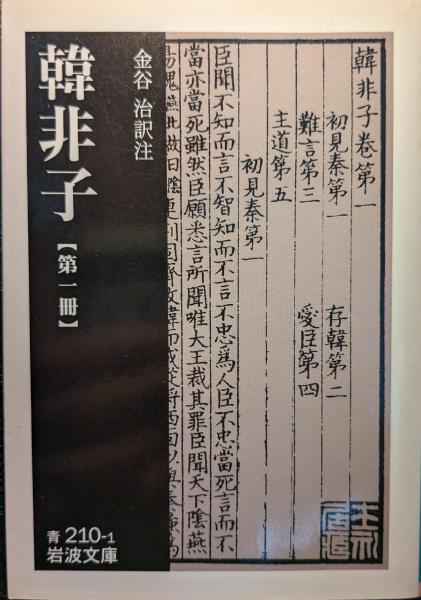 韓非子
【第一冊】
金谷 治訳注
青 210-1
岩波文庫
韓非子卷第一
初見秦第一
存韓第二
難言第三
愛臣第四
主道第五
初見秦第一
臣聞不知而言不智知而不言不忠爲人臣不忠當死言而不
當亦當死雖然臣願悉言所聞唯大王裁其罪臣聞天下陰燕